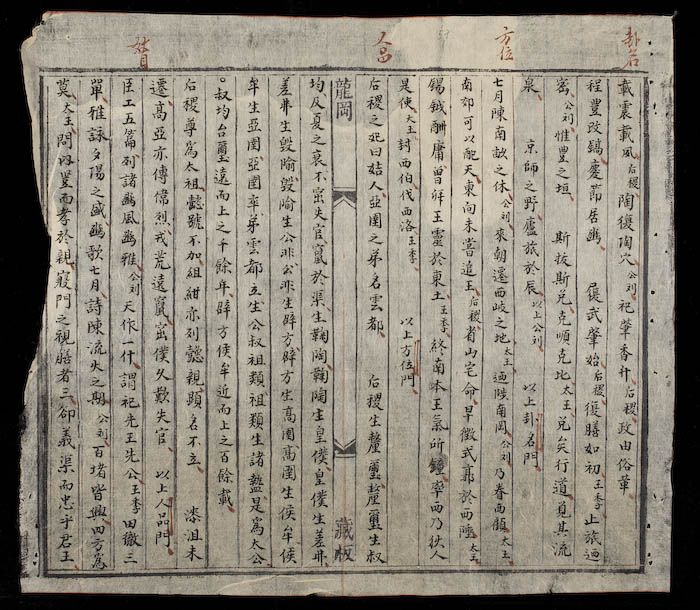 卦名
方位
人品
載震載風后稷陶復陶穴公刘祀肇香升后稷政由俗革
程豐改鎬慶節居豳　履武肇始后稷復膳如初王季止旅迺
密公刘惟豐之垣　斯拔斯兌克順克比太王兌矣行道覓其流
泉　京師之野廬旅於辰以上公刘　以上卦名門
七月陳南畝之休公刘來朝遷西岐之地太王迺陟南岡公刘乃眷西顧太王
南郊可以配天東向未嘗追王后稷省山宅命早徵式廓於西陲太王
錫鉞酬庸曾拜王靈於東土王季終南本王氣所鍾率西乃伏人
是使太王封西伯伐西洛王季　以上方位門
后稷之妃曰姞人亞圉之弟名雲都　后稷生釐璽釐璽生叔
龍岡　藏板
均反夏之衰不窋失官竄於渠生鞠陶鞠陶生皇僕皇僕生差弗
差弗生毀隃毀隃生公非公非生辟方辟方生高圉高圉生侯牟侯
牟生亞圉亞圉卒弟雲都立生公叔祖類祖類生諸盩是爲太公
叔均台璽遠而上之千餘年辟方侯牟近而上之百餘載
后稷尊爲太祖懿號不加組紺亦列懿親顯名不立　漆沮未
遷高亞亦傳偉烈戎荒遠竄窋僕久歎失官　以上人品門
臣工五篇列諸豳風豳雅公刘天作一什謂祀先王先公王季田徹三
單雅詠夕陽之盛豳歌七月詩陳流火之期公刘百堵皆興四方爲
莫太王問內豎而孝於親寢門之視膳者三卻義渠而忠乎君王